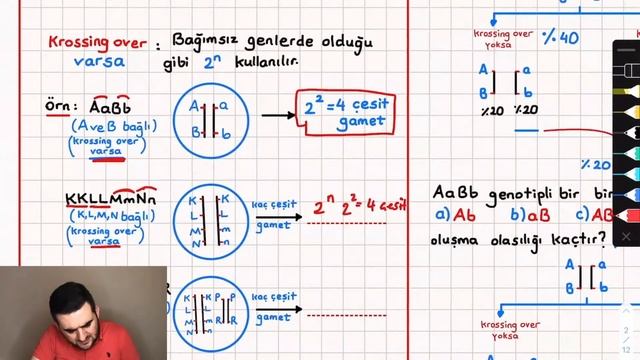 Krossing over varsa : Bağımsız genlerde olduğu
gibi 2ⁿ kullanılır.
Örn: AaBb
(A ve B bağlı)
(krossing over)
varsa
A a
B b
2² = 4 çeşit
gamet
KKLLMmNn
(K,L,M,N bağlı)
(krossing over)
varsa
K K
L L
M m
N n
kaç çeşit
gamet
2ⁿ 2² = 4 çeşit
K K P P
L L R R
M m
N n
kaç çeşit
gamet
krossing over
yoksa
%40
A a
B b
%20 %20
%20
AaBb genotipli bir
a) Ab b) aB c) AB
oluşma olasılığı kaçtır?
A a
B b
krossing over
yoksa
2
12